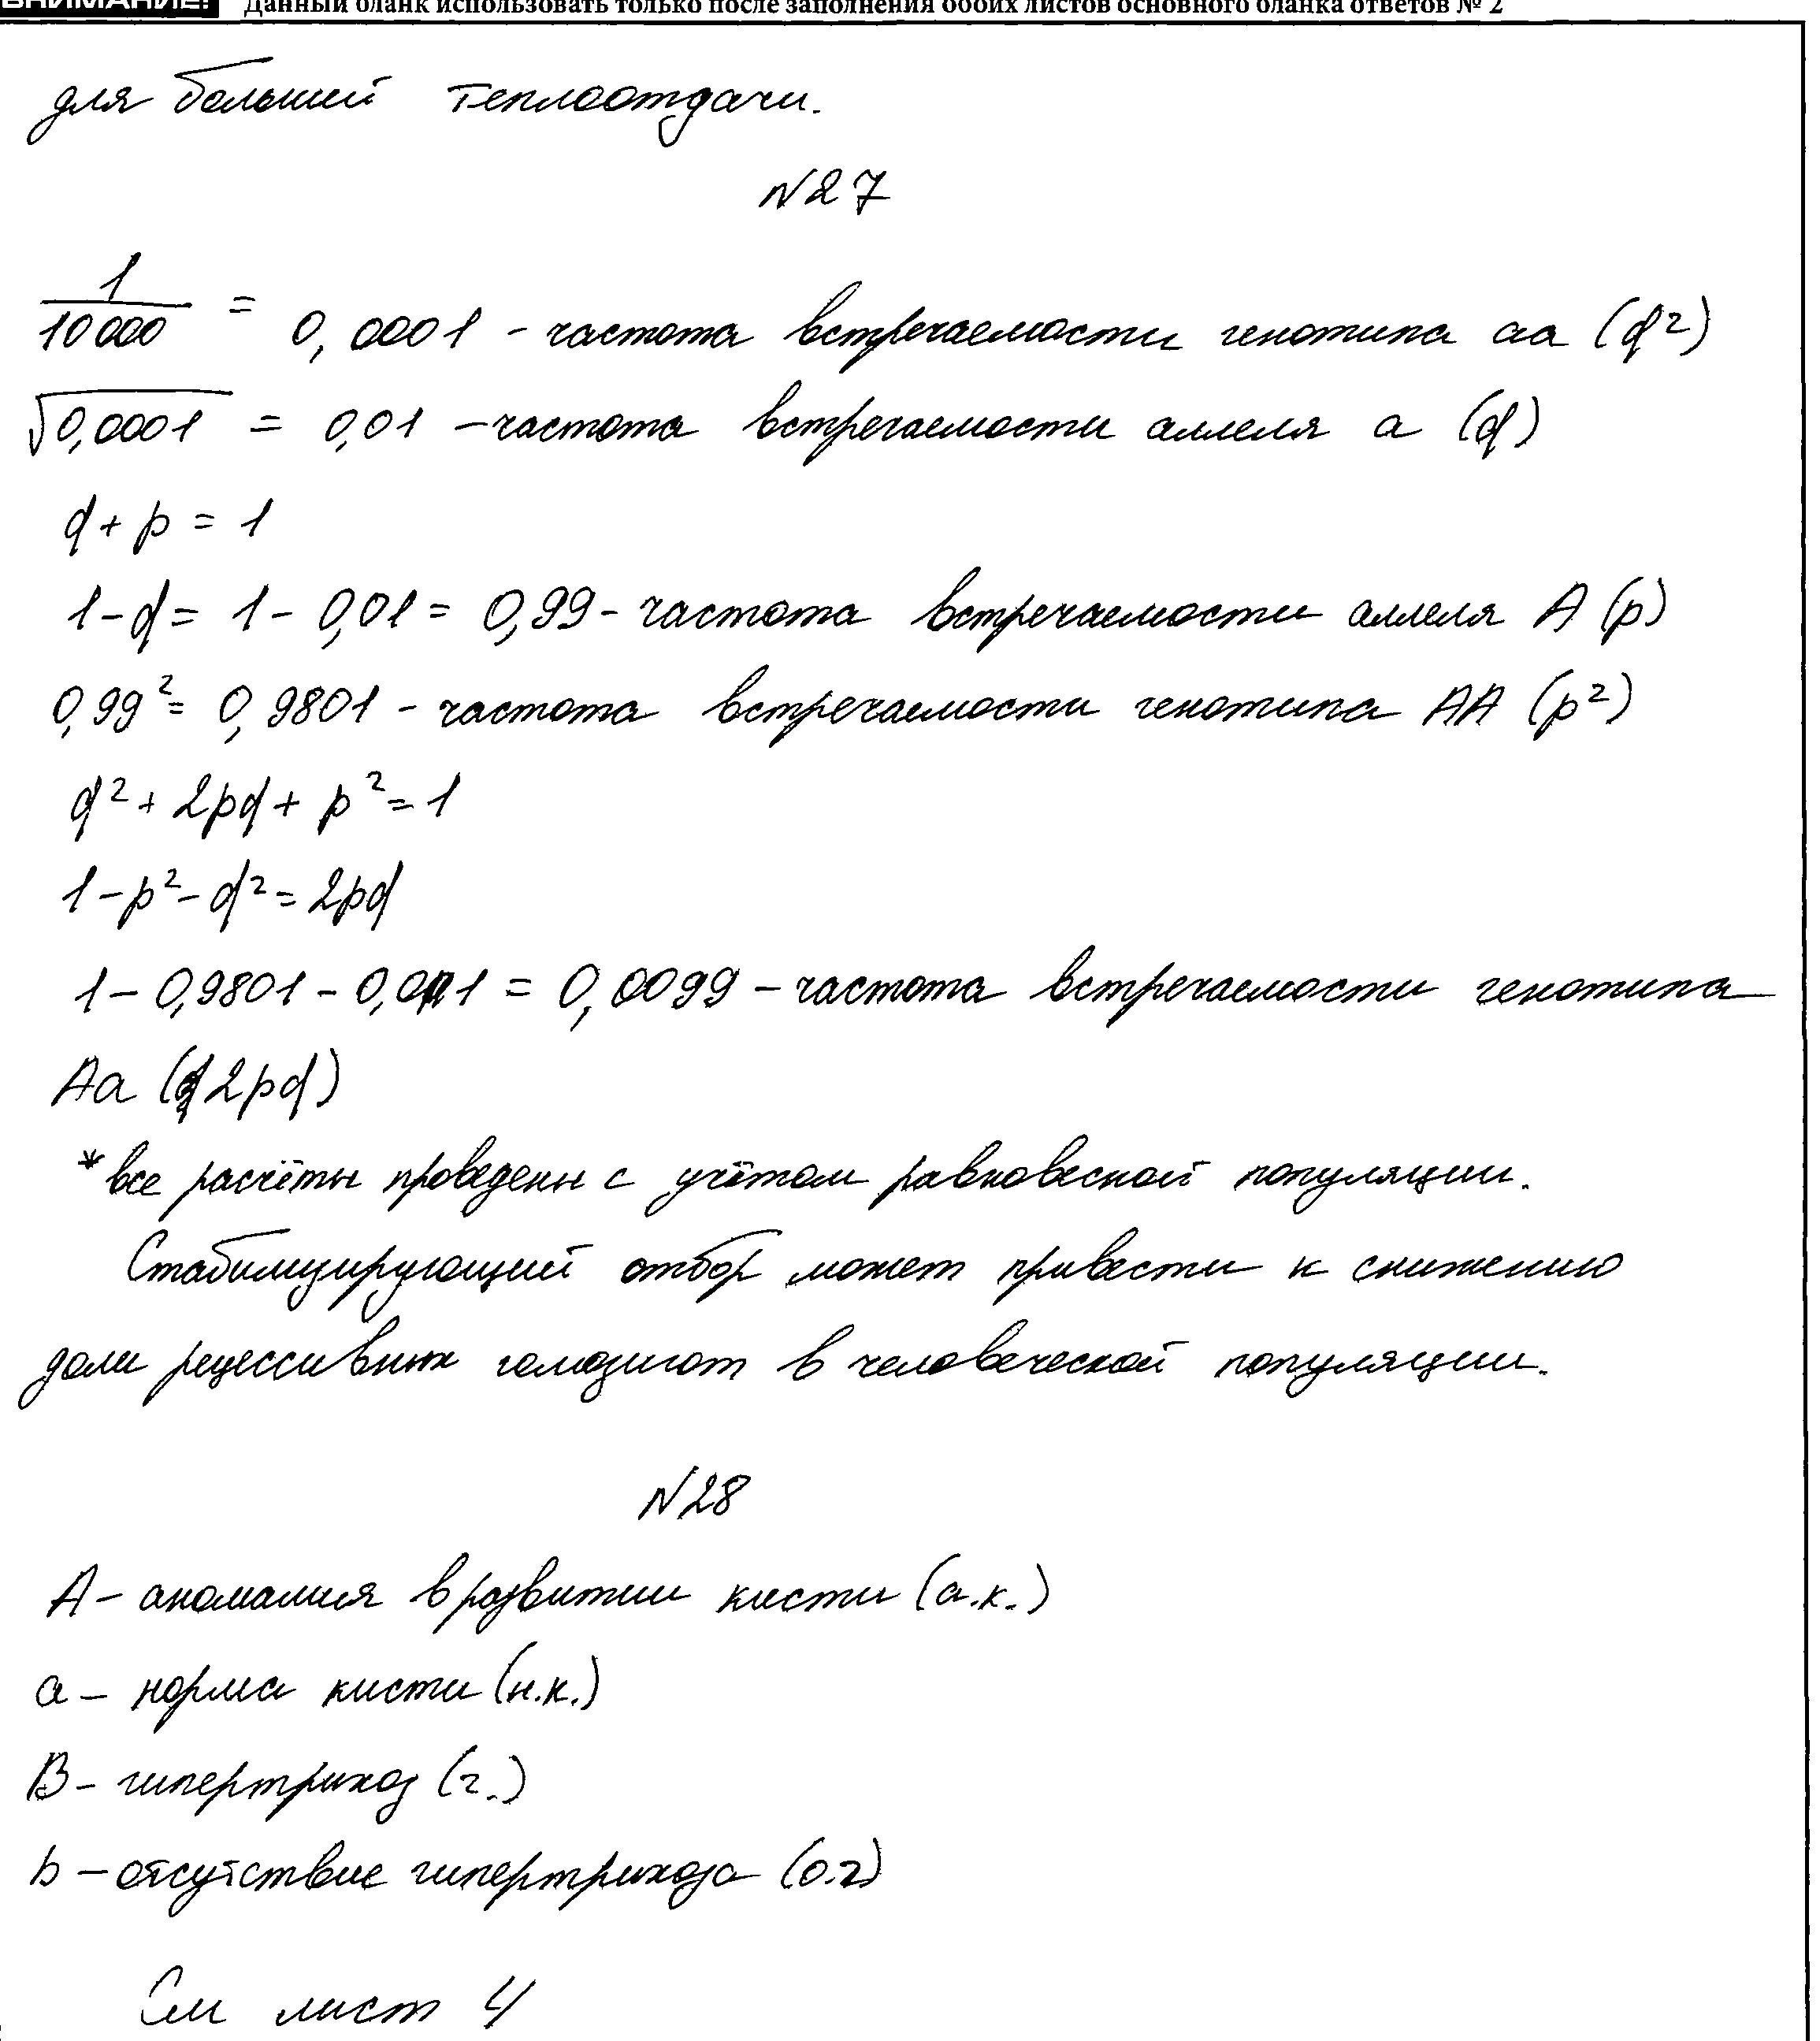 ВНИМАНИЕ! Данный бланк использовать только после заполнения обоих листов основного бланка ответов № 2
для большей теплоотдачи.
№27
1/10000 = 0,0001 - частота встречаемости генотипа aa (q²)
√0,0001 = 0,01 - частота встречаемости аллеля a (q)
q + p = 1
1 - q = 1 - 0,01 = 0,99 - частота встречаемости аллеля A (p)
0,99² = 0,9801 - частота встречаемости генотипа AA (p²)
q² + 2pq + p² = 1
1 - p² - q² = 2pq
1 - 0,9801 - = 0,0099 - частота встречаемости генотипа
Aa (2pq)
*все расчёты проведены с учётом равновесной популяции.
Стабилизирующий отбор может привести к снижению
доли рецессивных гомозигот в человеческой популяции.
№28
A - аномалия в развитии кисти (а.к.)
a - норма кисти (н.к.)
B - гипертрихоз (г.)
b - отсутствие гипертрихоза (о.г)
См лист 4